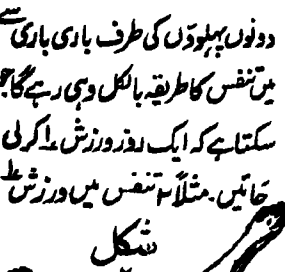 دونوں پہلوؤں کی طرف باری باری سے
میں تنفس کا طریقہ بالکل وہی رہے گا جو
سکتا ہے کہ ایک روز ورزش ۱ کر لی
جائیں۔ مثلاً ۲ تنفس میں ورزش ۱
شکل